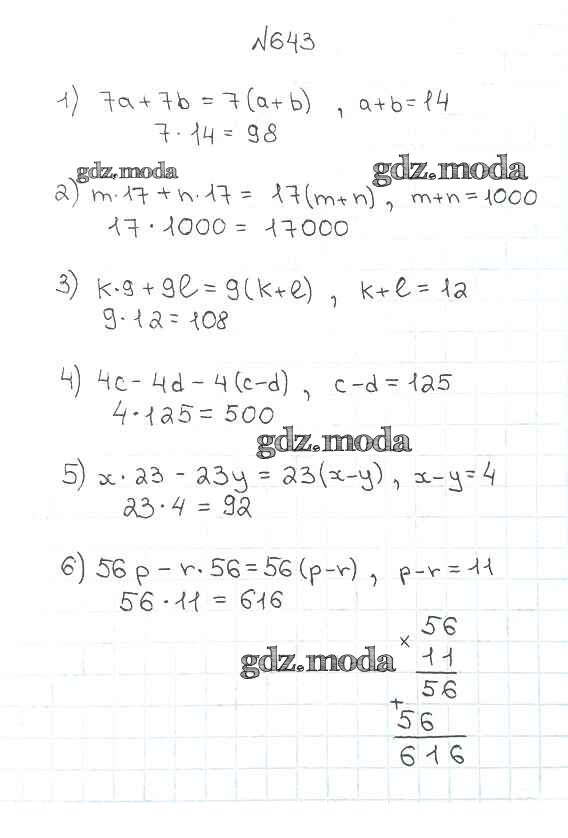 №643
1) 7a + 7b = 7(a + b) , a + b = 14
7 · 14 = 98
gdz.moda gdz.moda
2) m·17 + n·17 = 17(m+n) , m+n = 1000
17 · 1000 = 17000
3) k·9 + 9ℓ = 9(k+ℓ) , k+ℓ = 12
9·12 = 108
4) 4c - 4d - 4(c-d) , c-d = 125
4·125 = 500
gdz.moda
5) x·23 - 23y = 23(x-y) , x-y = 4
23·4 = 92
6) 56p - r·56 = 56(p-r) , p-r = 11
56·11 = 616
× 56
11
gdz.moda
56
+ 56
616